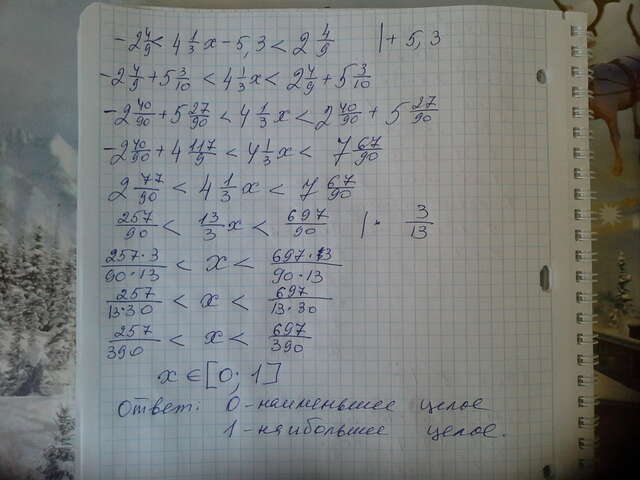 -2 4/9 < 4 1/3 x - 5,3 < 2 4/9 | + 5,3
-2 4/9 + 5 3/10 < 4 1/3 x < 2 4/9 + 5 3/10
-2 40/90 + 5 27/90 < 4 1/3 x < 2 40/90 + 5 27/90
-2 40/90 + 4 117/9 < 4 1/3 x < 7 67/90
2 77/90 < 4 1/3 x < 7 67/90
257/90 < 13/3 x < 697/90 | · 3/13
257·3/90·13 < x < 697·3/90·13
257/13·30 < x < 697/13·30
257/390 < x < 697/390
x ∈ [0; 1]
Ответ: 0 - наименьшее целое
1 - наибольшее целое.